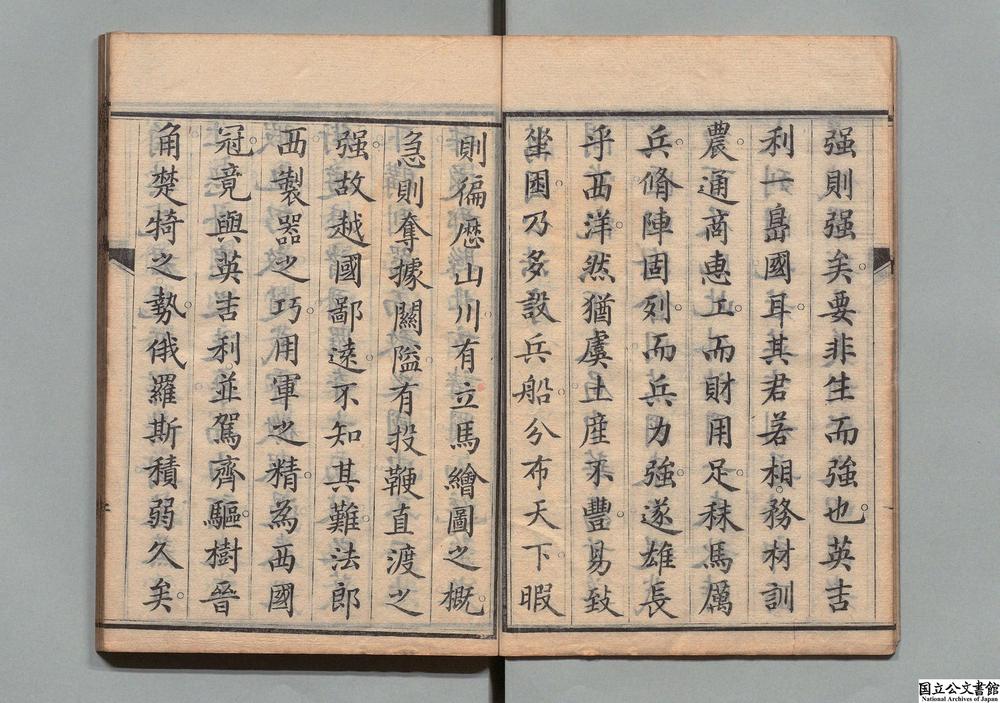 强則强矣要非生而强也英吉
利一島國耳其君若相務材訓
農通商惠工而財用足秣馬厲
兵脩陣固列而兵力強遂雄長
乎西洋然猶虞土産不豐易致
坐困乃多設兵船分布天下暇
則徧歷山川有立馬繪圖之概
急則奪據關隘有投鞭直渡之
强故越國鄙遠不知其難法郎
西製器之巧用軍之精為西國
冠竟與英吉利並駕齊驅樹晉
角楚犄之勢俄羅斯積弱久矣
国立公文書館
National Archives of Japan